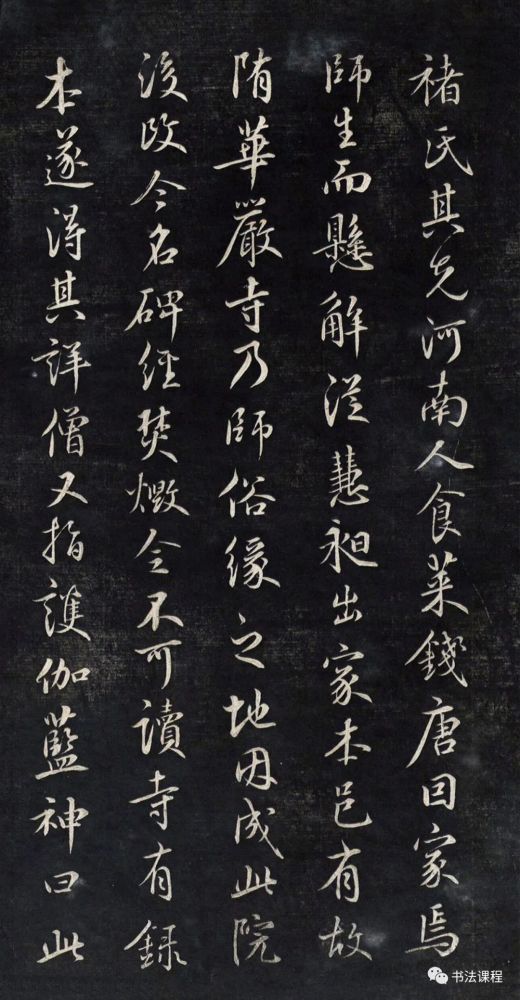 褚氏其先河南人食菜錢唐因家焉
師生而懸解從慧昶出家本邑有故
隋華嚴寺乃師俗緣之地因成此院
後改今名碑經焚燬今不可讀寺有錄
本遂得其詳僧又指護伽藍神曰此
书法课程